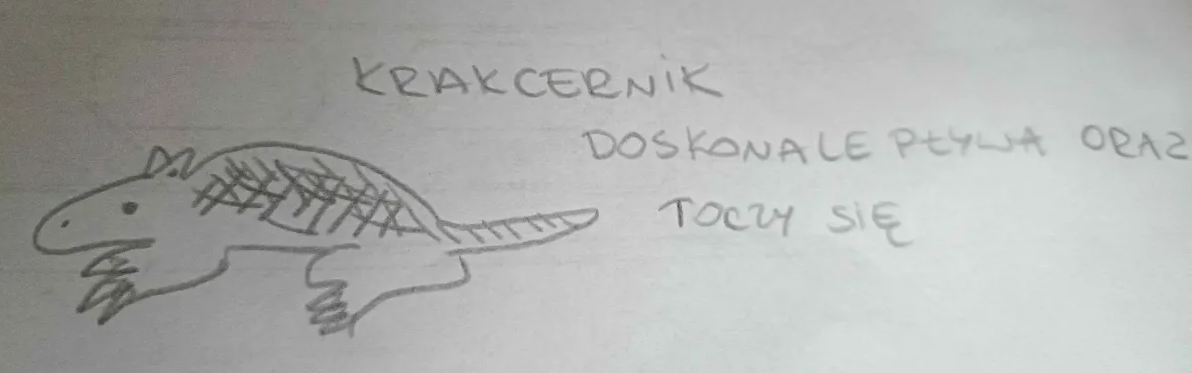 KRAKCERNIK
DOSKONALE PŁYWA ORAZ
TOCZY SIĘ